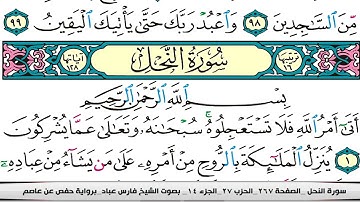 مِنَ ٱلسَّـٰجِدِينَ ٩٨ وَٱعْبُدْ رَبَّكَ حَتَّىٰ يَأْتِيَكَ ٱلْيَقِينُ ٩٩
ترتيبها ١٦ سُورَةُ النَّحْلِ آياتها ١٢٨
بِسْمِ ٱللَّهِ ٱلرَّحْمَـٰنِ ٱلرَّحِيمِ
أَتَىٰٓ أَمْرُ ٱللَّهِ فَلَا تَسْتَعْجِلُوهُ سُبْحَـٰنَهُۥ وَتَعَـٰلَىٰ عَمَّا يُشْرِكُونَ
١ يُنَزِّلُ ٱلْمَلَـٰٓئِكَةَ بِٱلرُّوحِ مِنْ أَمْرِهِۦ عَلَىٰ مَن يَشَآءُ مِنْ عِبَادِهِۦٓ
سورة النحل _ الصفحة ٢٦٧_ الحزب ٢٧_ الجزء ١٤ _ بصوت الشيخ فارس عباد_ برواية حفص عن عاصم